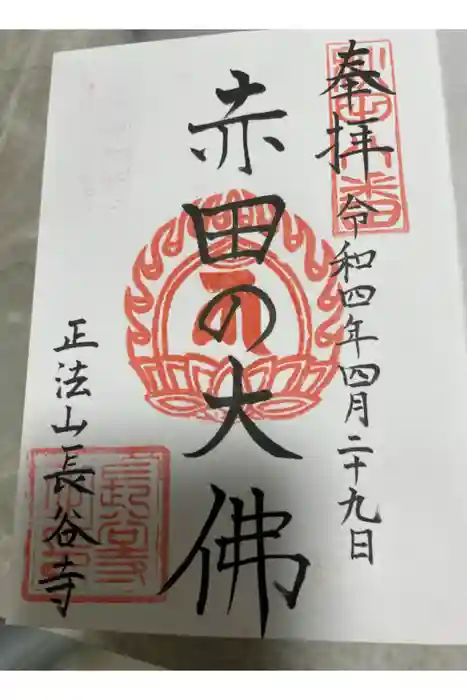 奉拝
令和四年四月二十九日
赤田の大佛
正法山長谷寺